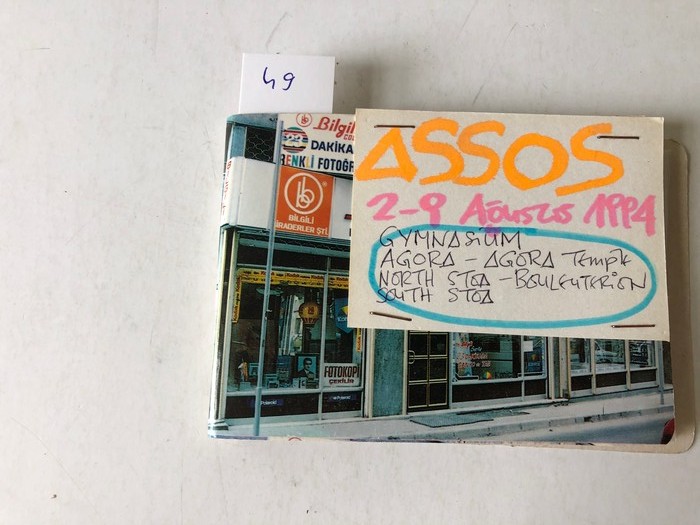 49
Bilgili
DAKİKA
RENKLİ FOTOĞR
BİLGİLİ
BİRADERLER ŞTİ.
FOTOKOPİ
ÇEKİLİR
Polaroid
ASSOS
2-9 AĞUSTOS 1994
GYMNASIUM
AGORA - AGORA TEMPLE
NORTH STOA - BOULEUTERION
SOUTH STOA